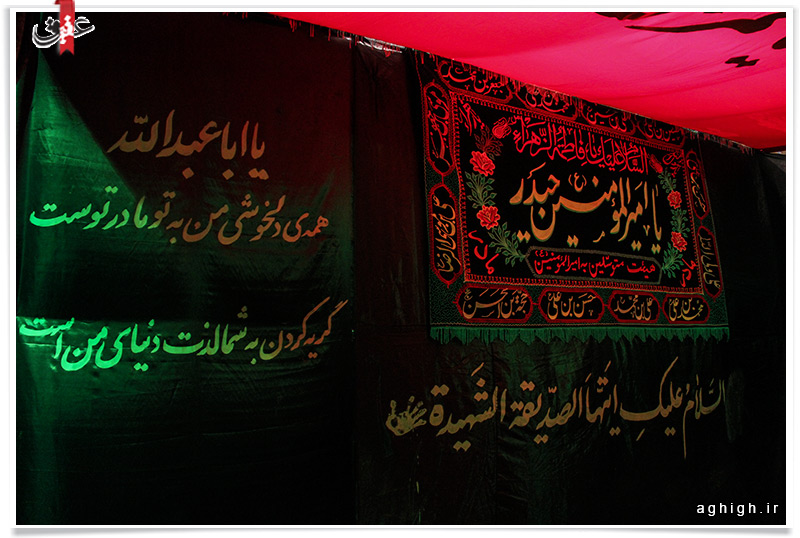 عقیق
یا اباعبدالله
همه‌ی دلخوشی من به تو مادر توست
گریه کردن به شما لذت دنیای من است
السلام علیک یا فاطمة الزهراء
یا امیرالمومنین حیدر (ع)
هیئت متوسلین به امیرالمومنین
محمد بن علی
علی بن محمد
حسن بن علی
حجة بن الحسن
السلام علیک ایتها الصدیقة الشهیدة
aghigh.ir